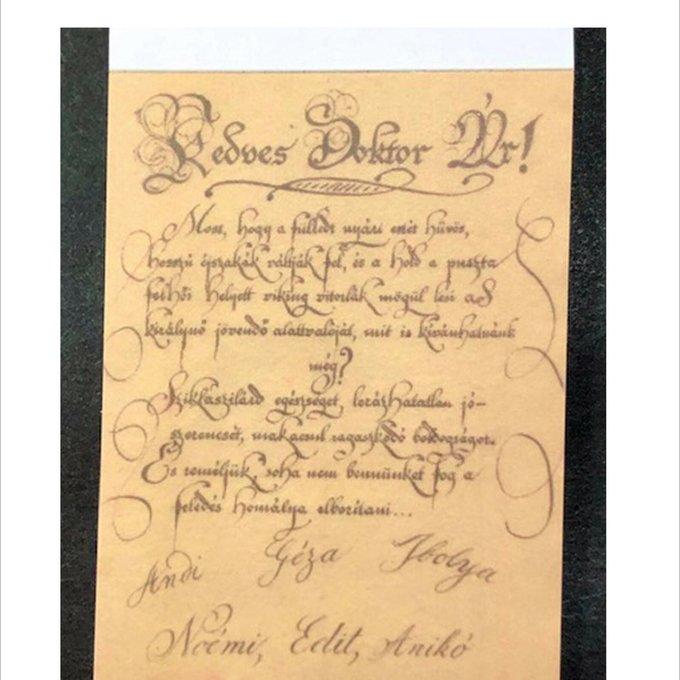 Kedves Doktor Úr!
Most, hogy a fülledt nyári estét hűvös,
hosszú éjszakák váltják fel, és a hold a puszta
felhői helyett viking vitorlák mögül lesi a
királynő jövendő alattvalóját, mit is kívánhatnánk
még?
Sziklaszilárd egészséget, lerázhatatlan jó-
szerencsét, makacsul ragaszkodó boldogságot.
És reméljük, soha nem bennünket fog a
feledés homálya elborítani...
Andi Géza Ibolya
Noémi, Edit, Anikó